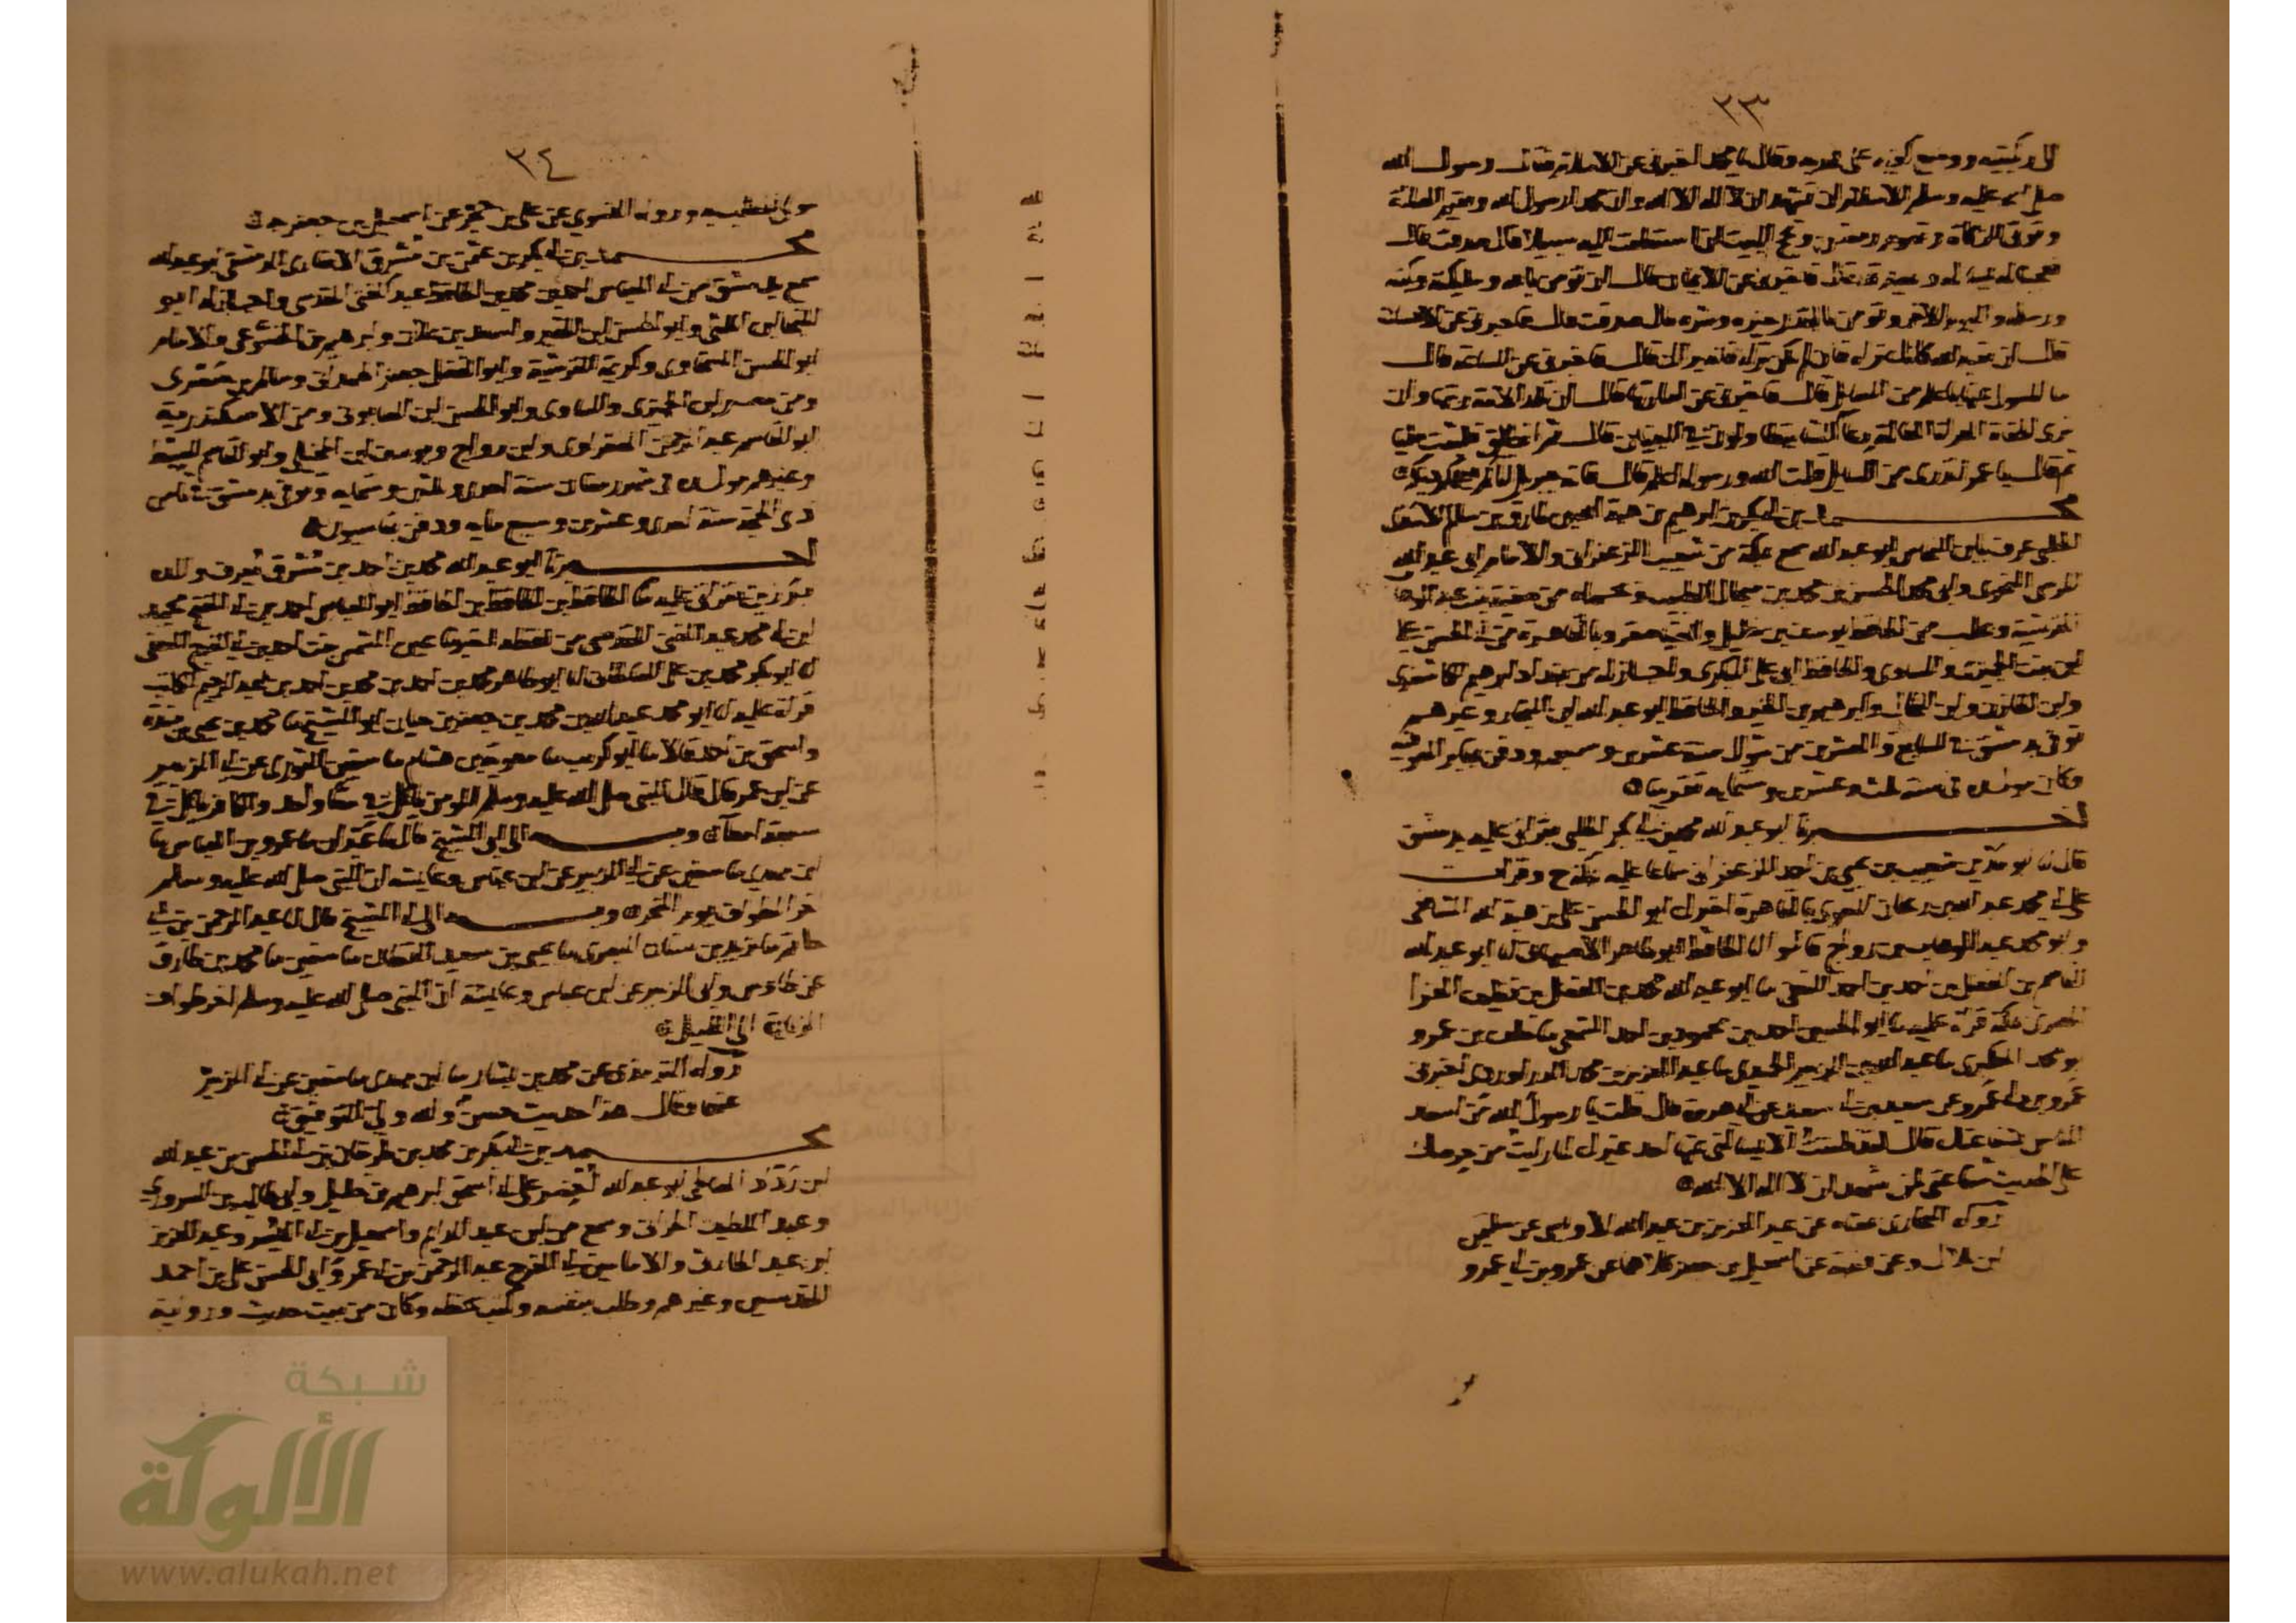 ٣٣
الى ركبتيه ووضع كفيه على فخذيه وقال يا محمد اخبرني عن الاسلام فقال رسول الله
صلى الله عليه وسلم الاسلام ان تشهد ان لا اله الا الله وان محمدا رسول الله وتقيم الصلاة
وتوتي الزكاة وتصوم رمضان وتحج البيت ان استطعت اليه سبيلا قال صدقت قال
فعجبنا له يساله ويصدقه قال فاخبرني عن الايمان قال ان تومن بالله وملايكته وكتبه
ورسله واليوم الاخر وتومن بالقدر خيره وشره قال صدقت قال فاخبرني عن الاحسان
قال ان تعبد الله كانك تراه فان لم تكن تراه فانه يراك قال فاخبرني عن الساعة قال
ما المسول عنها باعلم من السايل قال فاخبرني عن اماراتها قال ان تلد الامة ربتها وان
ترى الحفاة العراة العالة رعا الشا يتطاولون في البنيان قال ثم انطلق فلبثت مليا
ثم قال يا عمر اتدري من السايل قلت الله ورسوله اعلم قال فانه جبريل اتاكم يعلمكم دينكم
محمد بن ابي بكر بن ابرهيم بن هبة الله بن طارق بن سالم الاسدي
الحلبي عرف بابن النحاس ابو عبد الله سمع بمكة من شعيب الزعفراني والامام ابي عبد الله
المرسي النحوي وابي محمد الحسن بن محمد بن الطيب وبحماه من صفية بنت عبد الوهاب
القرشية وبحلب من الحافظ يوسف بن خليل وبالقاهرة من ابي الحسن علي
ابن بنت الجميزي والساوي والحافظ ابي علي البكري واجاز له من بغداد ابرهيم الكاشغري
وابن القازن وابن الخازن وابرهيم بن الخير والحافظ ابو عبد الله ابن النجار وغيرهم
توفي بدمشق في السابع والعشرين من شوال سنة عشرين وسبعمايه ودفن بمقابر الصوفية
وكان مولده في سنة ثلث وعشرين وستمايه تقريبا
اخبرنا ابو عبد الله محمد بن ابي بكر الحلبي بقراتي عليه بدمشق
قال انا ابو مدين شعيب بن يحيى بن احمد الزعفراني سماعا عليه بمكة ح وقرات
على ابي محمد عبد الله بن ريحان التقوي بالقاهرة اخبرك ابو الحسن علي بن هبة الله الشافعي
وابو محمد عبد الوهاب بن رواج قالوا انا الحافظ ابو طاهر الاصبهاني انا ابو عبد الله
القاسم بن الفضل بن احمد بن احمد الثقفي ما ابو عبد الله محمد بن الفضل بن نظيف الفرا
المصري بمكة قراة عليه ما ابو الحسين احمد بن محمود بن احمد الشمعي ما خلف بن عمرو
ابو محمد العكبري ما عبد الله بن الزبير الحميدي ما عبد العزيز بن محمد الدراوردي اخبرني
عمرو بن ابي عمرو عن سعيد بن ابي سعيد عن ابي هريرة قال قلت يا رسول الله من اسعد
الناس بشفاعتك قال لقد ظننت الا يسالني عنها احد غيرك لما رايت من حرصك
على الحديث شفاعتي لمن شهد ان لا اله الا الله
رواه البخاري عنه عن عبد العزيز بن عبد الله الاويسي عن سليمن
ابن بلال وعن قتيبة عن اسمعيل بن جعفر كلاهما عن عمرو بن ابي عمرو
٣٤
مولى المطلب ورواه النسوي عن علي بن حجر عن اسمعيل بن جعفر
محمد بن ابي بكر بن عثمن بن مشرق الانصاري الدمشقي ابو عبد الله
سمع بدمشق من ابي العباس احمد بن محمد بن الحافظ عبد الغني المقدسي واجاز له ابو
المنجا ابن اللتي وابو الحسن ابن المقير والسعيد بن علان وابرهيم بن الخشوعي والامام
ابو الحسن السخاوي وكريمة القرشية وابو الفضل جعفر الهمداني وسالم بن صصرى
ومن مصر ابن الجميزي والساوي وابو الحسن ابن الصابوني ومن الاسكندرية
ابو القاسم عبد الرحمن الصفراوي وابن رواج ويوسف ابن المخيلي وابو القاسم السبط
وغيرهم مولده في شهر رمضان سنة احدى وثلثين وستمايه وتوفي بدمشق في ثامن
ذي الحجة سنة احدى وعشرين وسبع مايه ودفن بقاسيون
اخبرنا ابو عبد الله محمد بن احمد بن مشرق يعرف والده
برزين بقراتي عليه ما الحافظ بن الحافظ بن الحافظ ابو العباس احمد بن ابي الفتح محمد
ابن ابي محمد عبد الغني المقدسي من لفظه بقيسون انا عين الشمس بنت احمد بن ابي الفرج الثقفي
انا ابو بكر محمد بن علي الصالحاني انا ابو طاهر محمد بن احمد بن محمد بن احمد بن عبد الرحيم الكاتب
قراة عليه انا ابو محمد عبد الله بن محمد بن جعفر بن حيان ابو الشيخ ما محمد بن يحيى بن مندة
واسحق بن احمد قالا ما ابو كريب ما معوية بن هشام ما سفين الثوري عن ابي الزبير
عن ابن عمر قال قال النبي صلى الله عليه وسلم المومن ياكل في معا واحد والكافر ياكل في
سبعة امعآ وبه الى ابي الشيخ قال ما عبدان ما عمرو بن العباس ما
ابن مهدي ما سفين عن ابي الزبير عن ابن عباس وعايشه ان النبي صلى الله عليه وسلم
اخر الطواف يوم النحر وبه الى ابي الشيخ قال انا عبد الرحمن بن ابي
حاتم ما يزيد بن سنان البصري ما يحيى بن سعيد القطان ما سفين ما محمد بن طارق
عن طاوس وابي الزبير عن ابن عباس وعايشة ان النبي صلى الله عليه وسلم اخر طواف
الزيارة الى الليل
رواه الترمذي عن محمد بن بشار ما ابن مهدي ما سفين عن ابي الزبير
عنهما وقال هذا حديث حسن والله ولي التوفيق
محمد بن ابي بكر بن محمد بن طرخان بن ابي الحسن بن عبد الله
ابن ردّاد الصالحي ابو عبد الله احضر على ابي اسحق ابرهيم بن خليل وابي طالب بن السروري
وعبد اللطيف الحراني وسمع من ابن عبد الدايم واسمعيل بن ابي اليسر وعبد العزيز
ابن عبد الحارثي والامامين ابي الفرج عبد الرحمن بن ابي عمر وابي الحسن علي بن احمد
المقدسيين وغيرهم وطلب بنفسه وكتب بخطه وكان من بيت حديث ورواية
شبكة
الألوكة
www.alukah.net